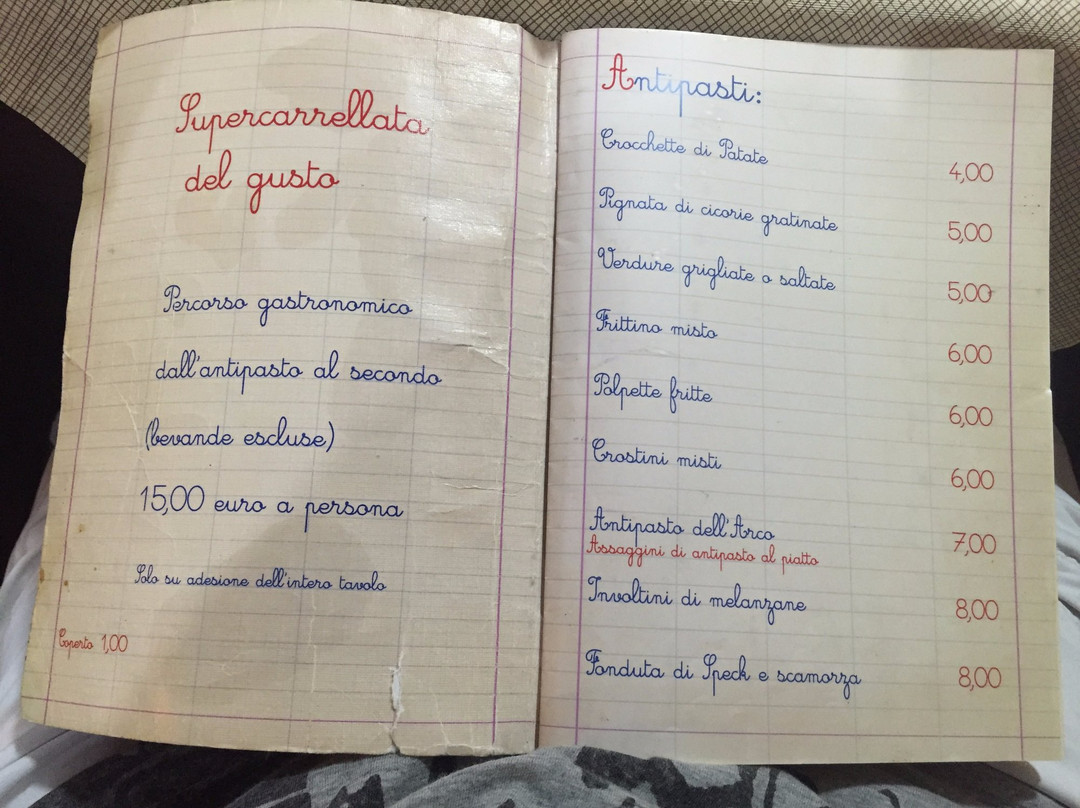 Supercarrellata
del gusto
Percorso gastronomico
dall'antipasto al secondo
(bevande escluse)
15,00 euro a persona
Solo su adesione dell'intero tavolo
Coperto 1,00
Antipasti:
Crocchette di Patate 4,00
Pignata di cicorie gratinate 5,00
Verdure grigliate o saltate 5,00
Frittino misto 6,00
Polpette fritte 6,00
Crostini misti 6,00
Antipasto dell'Arco 7,00
Assaggini di antipasto al piatto
Involtini di melanzane 8,00
Fonduta di Speck e scamorza 8,00